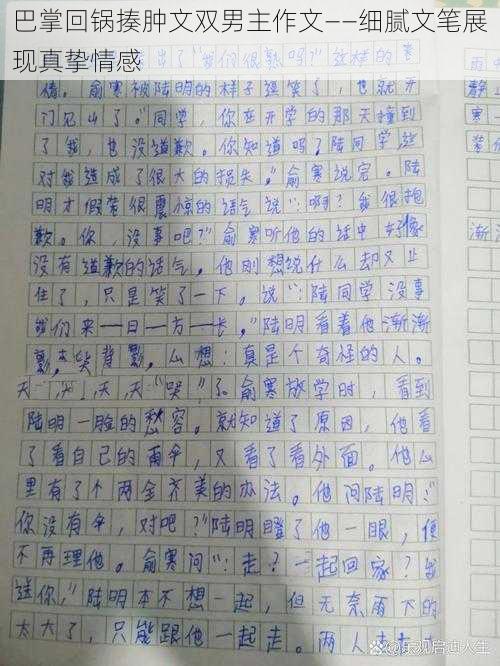 巴掌回锅揍肿文双男主作文——细腻文笔展
现真挚情感
出了"我们很熟吗?"这样的表
情。俞寒被陆明的样子逗笑了,也就开
门见山了。"同学,你在开学的那天撞到
了我,也没道歉。你知道吗了陆同学这
对我造成了很大的损失。"俞寒说完。陆
明才假装很震惊的语气说":啊?我很抱
歉。你,没事吧?"俞寒听他的话中好像
没有道歉的话气。他刚想说什么却又止
住了,只是笑了一下。说":陆同学没事
我们来—日—方—长。"陆明看着他渐渐
背影。心想:真是个奇怪的人。
天,天,天,"哭"了。俞寒放学时,看到
陆明一脸的愁容。就知道了原因,他看
了看自己的雨伞,又看了看外面。他心
里有了个两全齐美的办法。他问陆明":
你没有伞,对吧?"陆明瞪了他一眼,便
不再理他。俞寒问":走?一起回家?我
送你,"陆明本不想一起,但无奈雨下的
太大了,只能跟他一起走。两人走
雨
静
寒
渐渐
@乐观启迪人生